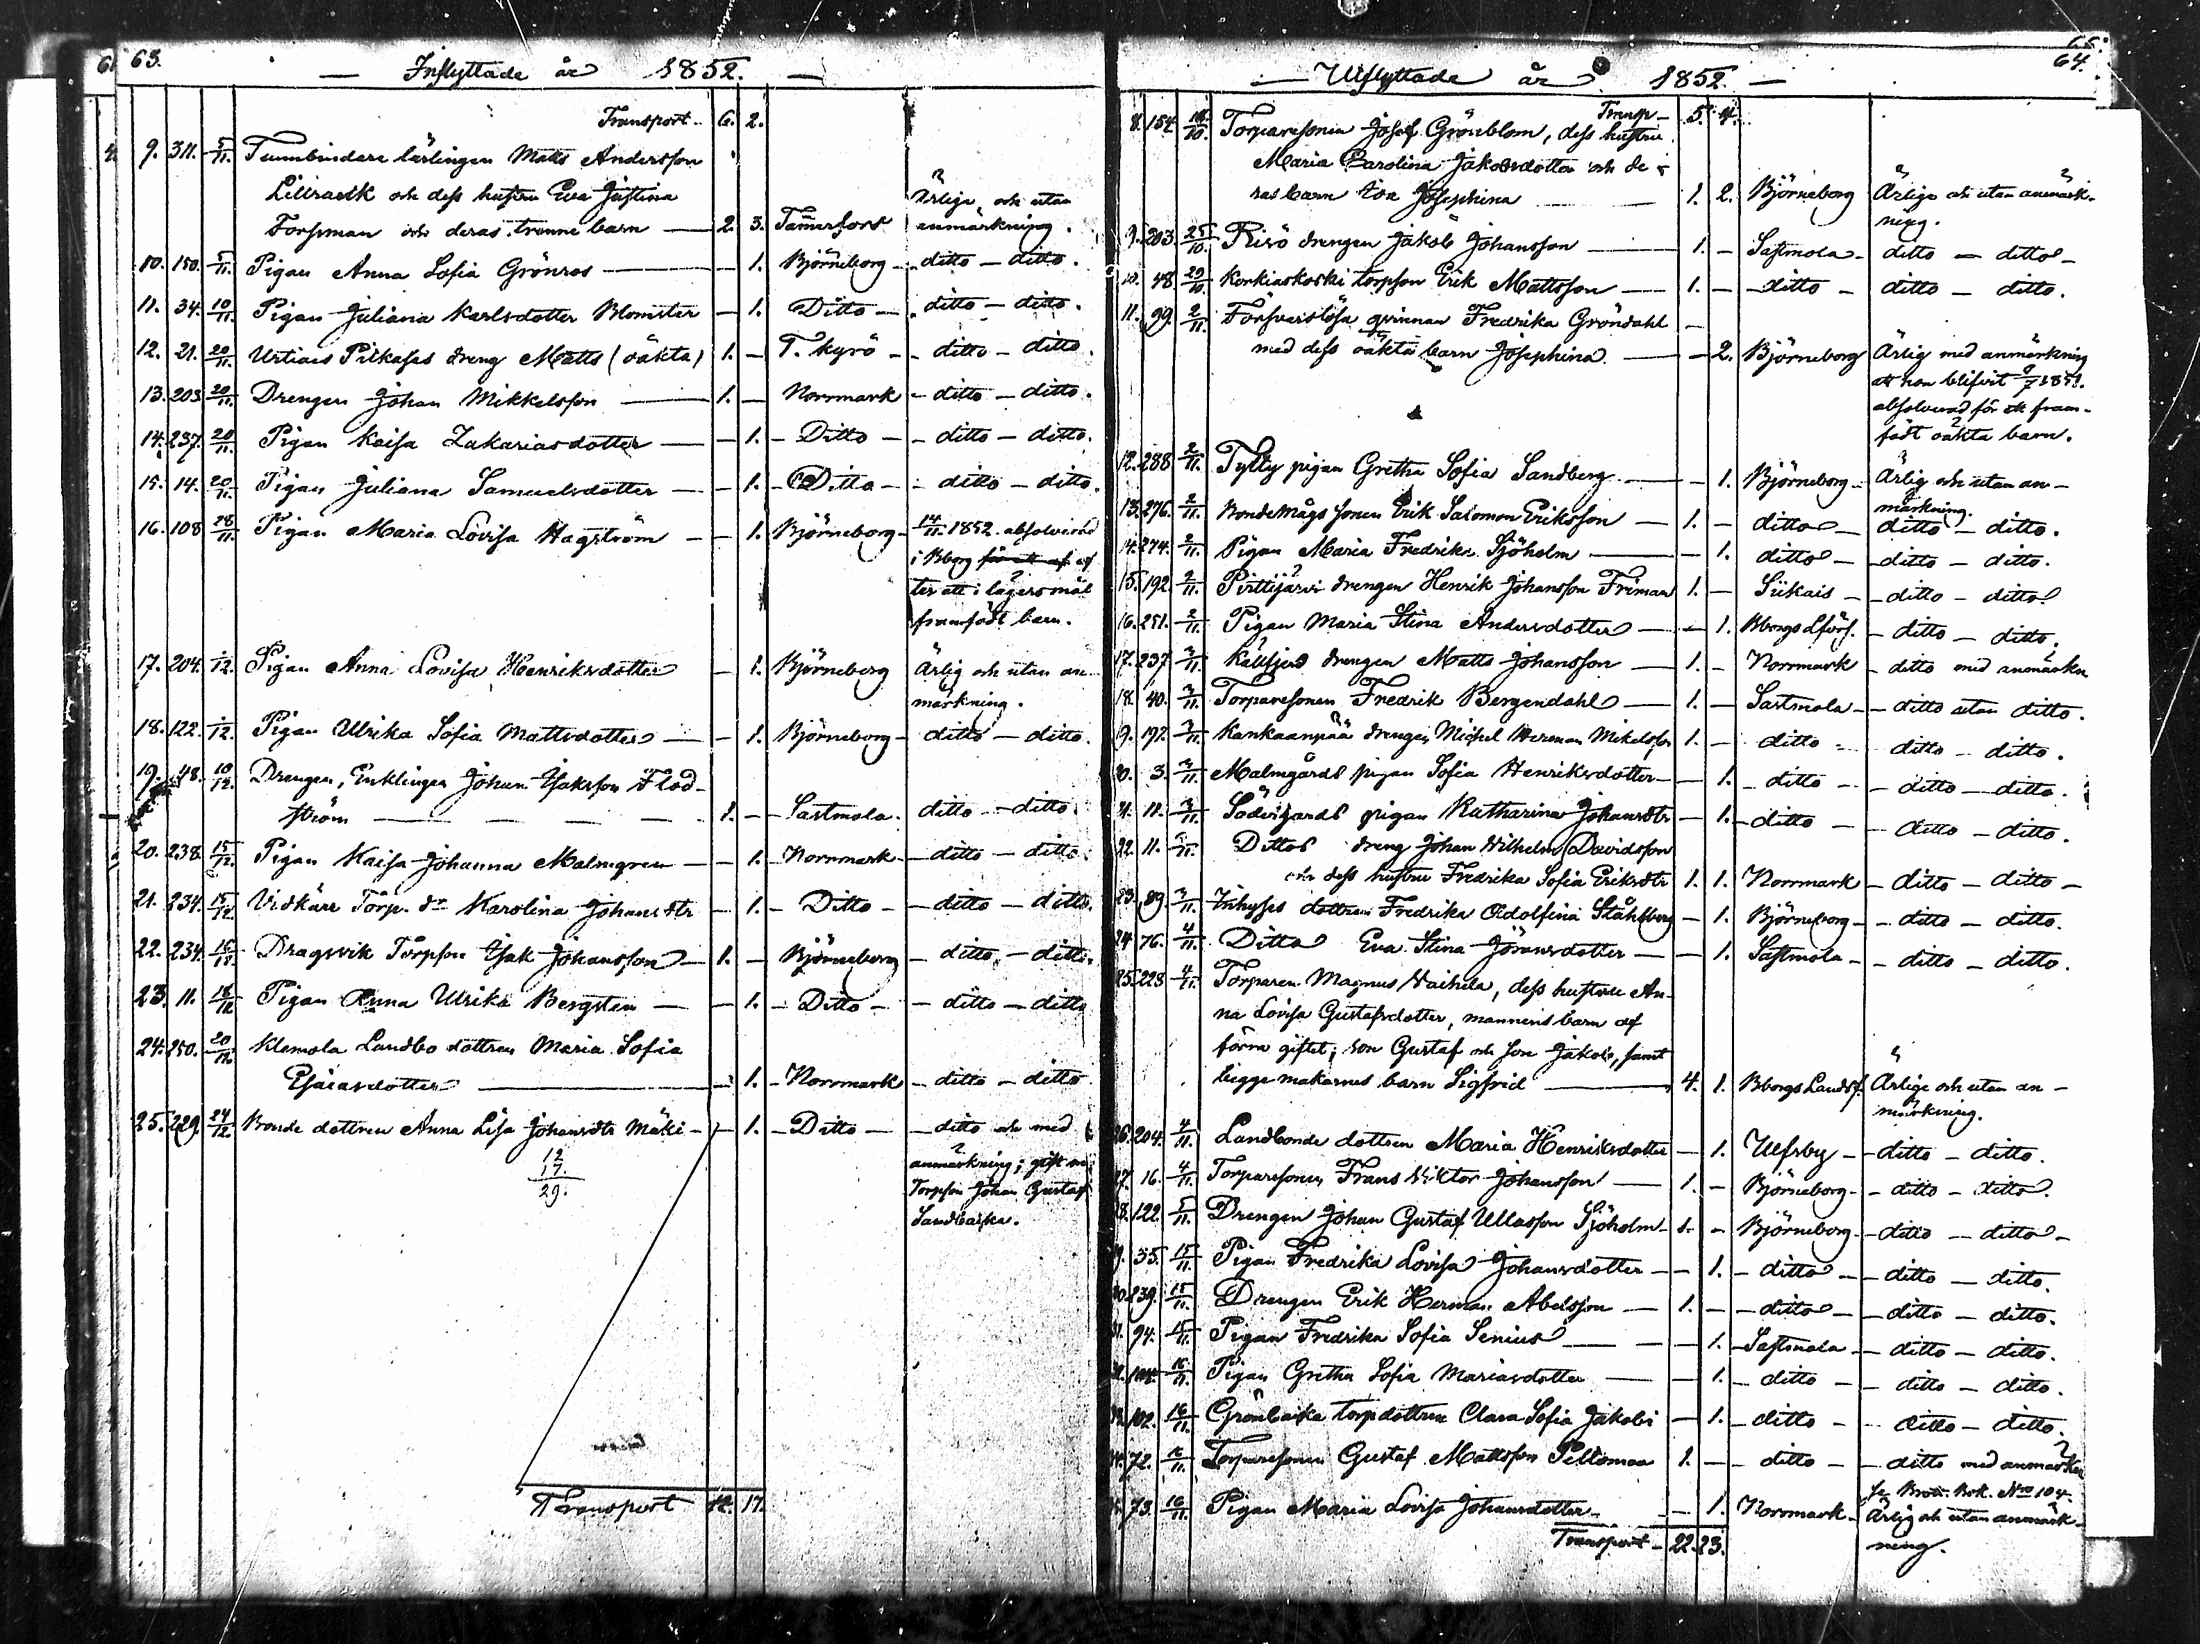 63.
Inflyttade år 1852.
Transport 6. 2.
9. 311. 5/11. Tunnbindare lärlingen Matts Andersson
Lillrank och dess hustru Eva Justina
Forsman och deras trenne barn — 2. 3. Tammerfors Ärliga och utan anmärkning.
10. 150. 5/11. Pigan Anna Sofia Grönros — 1. Björneborg ditto — ditto.
11. 34. 10/11. Pigan Juliana Karlsdotter Blomster — 1. Ditto — ditto — ditto.
12. 21. 20/11. Pilkases dreng Matts (oäkta) 1. — T. kyrö — ditto — ditto.
13. 203. 20/11. Drengen Johan Mikkelsson — 1. — Norrmark — ditto — ditto.
14. 237. 20/11. Pigan Kaisa Zakariasdotter — 1. — Ditto — ditto — ditto.
15. 14. 20/11. Pigan Juliana Samuelsdotter — 1. — Ditto — ditto — ditto.
16. 108. 28/11. Pigan Maria Lovisa Hagström — 1. Björneborg 14/11. 1852. absolverad
i Bborg för ett af ef
ter ett i lägersmål
framfödt barn.
17. 204. /12. Pigan Anna Lovisa Henriksdotter — 1. Björneborg Ärlig och utan an-
märkning.
18. 122. /12. Pigan Ulrika Sofia Mattsdotter — 1. Björneborg — ditto — ditto.
19. 48. 10/12. Drengen, Enklingen Johan Isaksson Flod-
ström — 1. — Sastmola. ditto — ditto.
20. 238. 15/12. Pigan Kaisa Johanna Malmgren — 1. Norrmark — ditto — ditto.
21. 234. 15/12. Vidkärr Torp. dr Karolina Johansdtr — 1. — Ditto — ditto — ditto.
22. 234. 16/12. Dragsvik Torpson Isak Johansson — 1. — Björneborg — ditto — ditto.
23. 11. 18/12. Pigan Anna Ulrika Bergsten — 1. — Ditto — ditto — ditto
24. 250. 20/12. Klemola Landbo dottren Maria Sofia
Esaiasdotter — 1. — Norrmark — ditto — ditto
25. 229. 24/12. Bonde dottren Anna Lisa Johansdtr Mäki — 1. — Ditto — ditto och med
anmärkning; gift m
Torpson Johan Gustaf
Sandbacka.
12
17.
29.
Transport 12. 17.
65.
64.
Utflyttade år 1852.
Transp— 5. 4.
8. 154. /10. Torparesonen Josef Grönblom, dess hustru
Maria Carolina Jakobsdotter och de
ras barn Eva Josephina — 1. 2. Björneborg Ärliga och utan anmärk-
ning.
9. 203. 25/10. Risö drengen Jakob Johansson — 1. — Sastmola — ditto — ditto —
10. 48. 29/10. Konkiaskoski torpson Erik Mattsson — 1. — ditto — ditto — ditto.
11. 99. 2/11. Försvarslösa qvinnan Fredrika Gröndahl —
med dess oäkta barn Josephina. — 2. Björneborg Ärlig med anmärkning
att hon blifvit 1851.
absolverad för ett fram-
född oäkta barn.
12. 288. 2/11. Tytty pigan Gretha Sofia Sandberg — 1. Björneborg — Ärlig och utan an-
märkning.
13. 276. 2/11. Bondemågs sonen Erik Salomon Eriksson — 1. — ditto — ditto — ditto.
14. 274. 2/11. Pigan Maria Fredrika Sjöholm — 1. ditto — ditto — ditto.
15. 192. 2/11. Pirttijärvi drengen Henrik Johansson Friman 1. — Siikais — ditto — ditto
16. 251. 2/11. Pigan Maria Stina Andersdotter — 1. Bborgs Lförs. — ditto — ditto.
17. 237. 3/11. Källfjerd drengen Matts Johansson — 1. — Norrmark — ditto med anmärkn
18. 40. 3/11. Torparesonen Fredrik Bergendahl — 1. — Sastmola — ditto utan ditto.
19. 197. 3/11. Kankaanpää drengen Michel Herman Mikelsson 1. — ditto — ditto — ditto.
20. 3. 3/11. Malmgårds pigan Sofia Henriksdotter — 1. — ditto — ditto — ditto.
21. 11. 3/11. Södergårds pigan Katharina Johansdtr — 1. — ditto — ditto — ditto.
22. 11. 3/11. Dittos dreng Johan Wilhelm Davidsson
och dess hustru Fredrika Sofia Eriksdtr 1. 1. Norrmark — ditto — ditto —
23. 89. 3/11. Inhyses dottren Fredrika Adolfina Ståhlberg — 1. Björneborg — ditto — ditto.
24. 76. 4/11. Ditto Eva Stina Göransdotter — 1. Sastmola — ditto — ditto.
25. 228. 4/11. Torparen Magnus Vaihela, dess hustru An-
na Lovisa Gustafsdotter, mannens barn af
förra giftet; son Gustaf och son Jakob, samt
begge makarnes barn Sigfrid — 4. 1. Bborgs Landsf. Ärliga och utan an-
märkning.
26. 204. 4/11. Landbonde dottren Maria Henriksdotter — 1. Ulfsby — ditto — ditto.
27. 16. 4/11. Torparesonen Frans Viktor Johansson — 1. — Björneborg — ditto — ditto.
28. 122. 5/11. Drengen Johan Gustaf Ullasson Sjöholm — 1. — Björneborg — ditto — ditto —
29. 35. 15/11. Pigan Fredrika Lovisa Johansdotter — 1. — ditto — ditto — ditto.
30. 239. 15/11. Drengen Erik Herman Abelsson — 1. — ditto — ditto — ditto.
31. 94. 15/11. Pigan Fredrika Sofia Senius — 1. — Sastmola — ditto — ditto.
32. 104. 16/11. Pigan Gretha Sofia Mariasdotter — 1. — ditto — ditto — ditto.
33. 102. 16/11. Grönbacka torpdottren Clara Sofia Jakobs — 1. — ditto — ditto — ditto.
34. 72. 16/11. Torparesonen Gustaf Mattsson Peltomaa 1. — ditto — ditto med anmärkn
se Bok. No 104.
35. 73. 16/11. Pigan Maria Lovisa Johansdotter — 1. Norrmark — Ärlig och utan anmärk-
ning.
Transport — 22. 23.